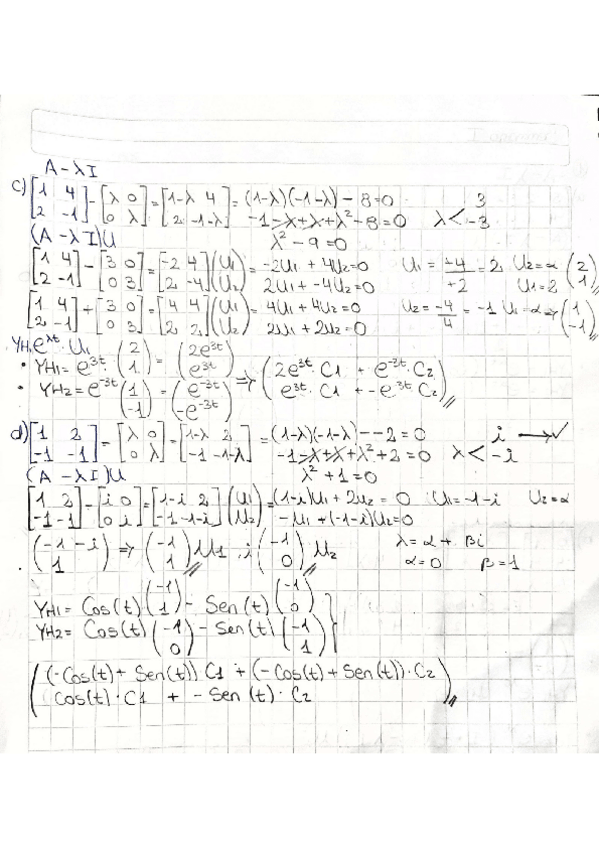 A - λI
c) [1 4; 2 -1] - [λ 0; 0 λ] = [1-λ 4; 2 -1-λ] = (1-λ)(-1-λ) - 8 = 0
-1 - λ + λ + λ² - 8 = 0 λ < 3 -3
(A - λI)U λ² - 9 = 0
[1 4; 2 -1] - [3 0; 0 3] = [-2 4; 2 -4] (U1; U2) = -2U1 + 4U2 = 0 U1 = -4/+2 = 2 U2 = α (2; 1)
2U1 + -4U2 = 0 U1 = 2
[1 4; 2 -1] + [3 0; 0 3] = [4 4; 2 2] (U1; U2) = 4U1 + 4U2 = 0 U2 = -4/4 = -1 U1 = α => (1; -1)
2U1 + 2U2 = 0
YH1 e^λt · U1
• YH1 = e^3t · (2; 1) = (2e^3t; e^3t)
• YH2 = e^-3t (1; -1) = (e^-3t; -e^-3t) => (2e^3t · C1 + e^-3t · C2; e^3t · C1 + -e^-3t · C2)
d) [1 2; -1 -1] = [λ 0; 0 λ] = [1-λ 2; -1 -1-λ] = (1-λ)(-1-λ) - -2 = 0 i → ✓
-1 - λ + λ + λ² + 2 = 0 λ < -i
(A - λI)U λ² + 1 = 0
[1 2; -1 -1] - [i 0; 0 i] = [1-i 2; -1 -1-i] (U1; U2) = (1-i)U1 + 2U2 = 0 U1 = -1-i U2 = α
-U1 + (-1-i)U2 = 0
(-1-i; 1) => (-1; 1) U1 , i (-1; 0) U2 λ = α + βi
α = 0 β = 1
YH1 = Cos(t) (-1; 1) - Sen(t) (-1; 0)
YH2 = Cos(t) (-1; 0) - Sen(t) (-1; 1)
(-Cos(t) + Sen(t)) C1 + (-Cos(t) + Sen(t)) · C2
Cos(t) · C1 + - Sen(t) · C2